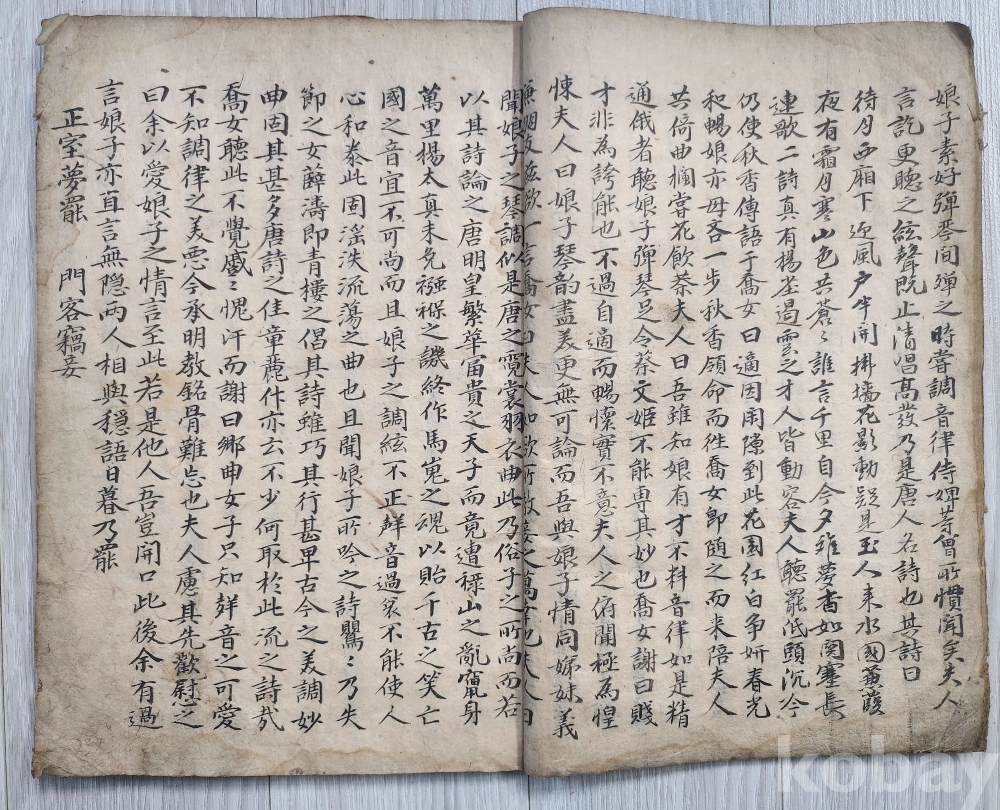 娘子素好彈琴間彈之時嘗調音律侍婢等曾所慣聞矣夫人
言訖更聽之絃聲旣止清唱高發乃是唐人名詩也其詩曰
待月西厢下迎風戶半開拂墻花影動疑是玉人来水國蒹葭
夜有霜月寒山色共蒼〻誰言千里自今夕離夢杳如関塞長
連歌二詩真有楊 過雲之才人皆動容夫人聽罷低頭沉吟
仍使秋香傳語于喬女曰適因閑隙到此花園紅白争妍春光
和暢娘亦毋吝一步秋香領命而徃喬女卽随之而来陪夫人
共倚曲欄賞花飮茶夫人曰吾雖知娘有才不料音律如是精
通俄者聽娘子彈琴足令蔡文姬不能専其妙也喬女謝曰賤
才非為誇能也不過自適而暢懷實不意夫人之俯聞極為惶
悚夫人曰娘子琴韵盡美更無可論而吾與娘子情同娣妹義
欲一言喬女曰 夫人
聞娘子之琴調似是唐之霓裳羽衣曲此乃俗子之所尚而若
以其詩論之唐明皇繁華富貴之天子而竟遭祿山之亂竄身
萬里楊太真未免襁褓之譏終作馬嵬之魂以貽千古之笑亡
國之音宜不可尚而且娘子之調絃不正鮮音過哀不能使人
心和泰此固滛泆流蕩之曲也且聞娘子所吟之詩鸎〻乃失
節之女薛濤即青樓之倡其詩雖巧其行甚卑古今之美調妙
曲固其甚多唐詩之佳童麗什亦云不少何取於此流之詩哉
喬女聽此不覺蹙〻愧汗而謝曰鄉曲女子只知鮮音之可愛
不知調律之美惡今承明教銘骨難忘也夫人慮其先歡慰之
曰余以愛娘子之情言至此若是他人吾豈開口此後余有過
言娘子亦直言無隐两人相與穩語日暮乃罷
正室夢罷 門客竊妾